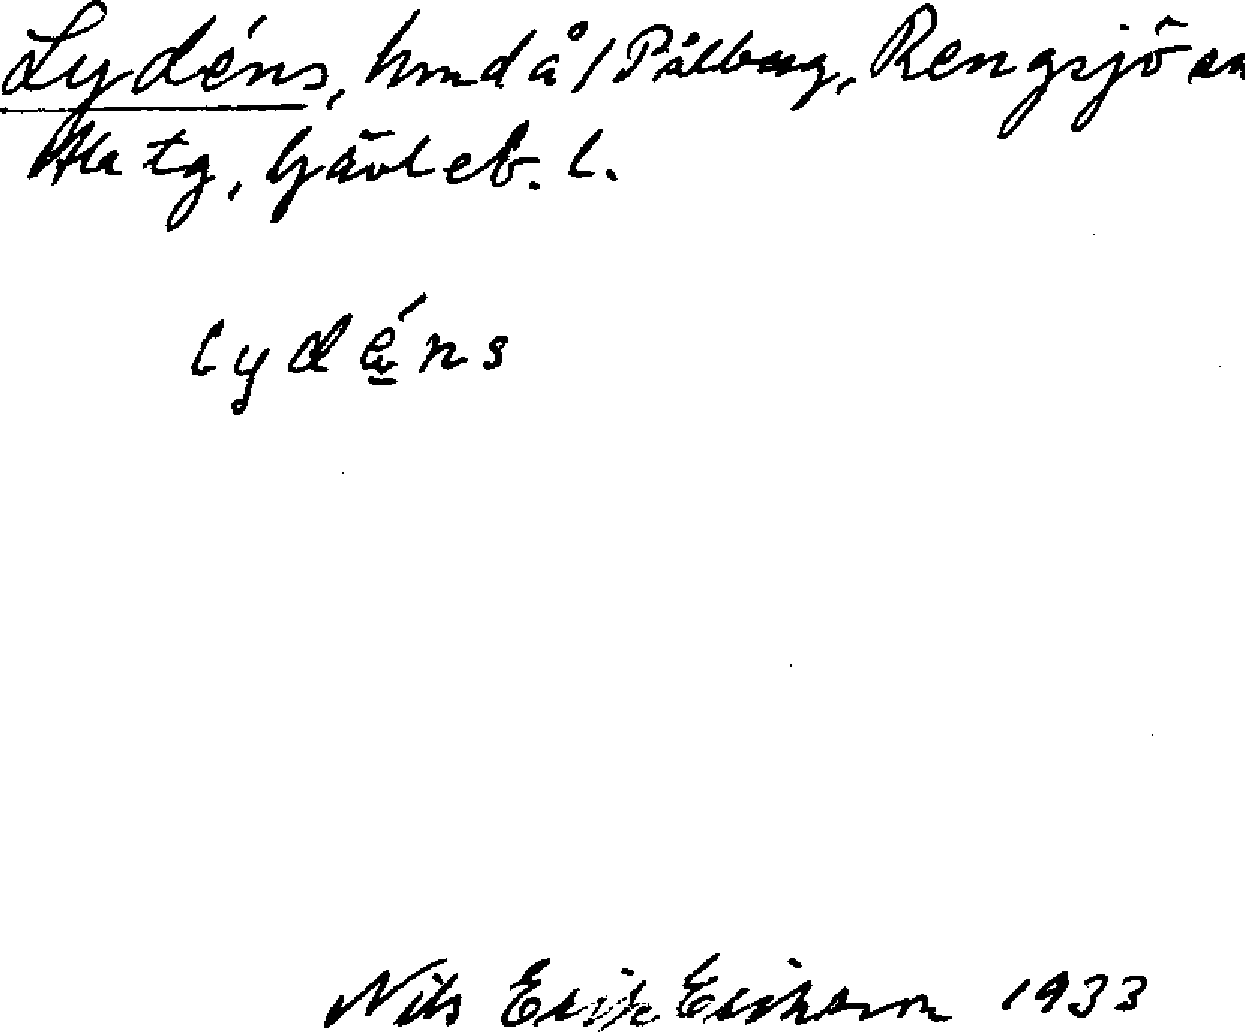 Lydéns, hmd å Pålberg, Rengsjö sn
Ala tg, Gävleb. l.
lydéns
Nils Erik Erikson 1933